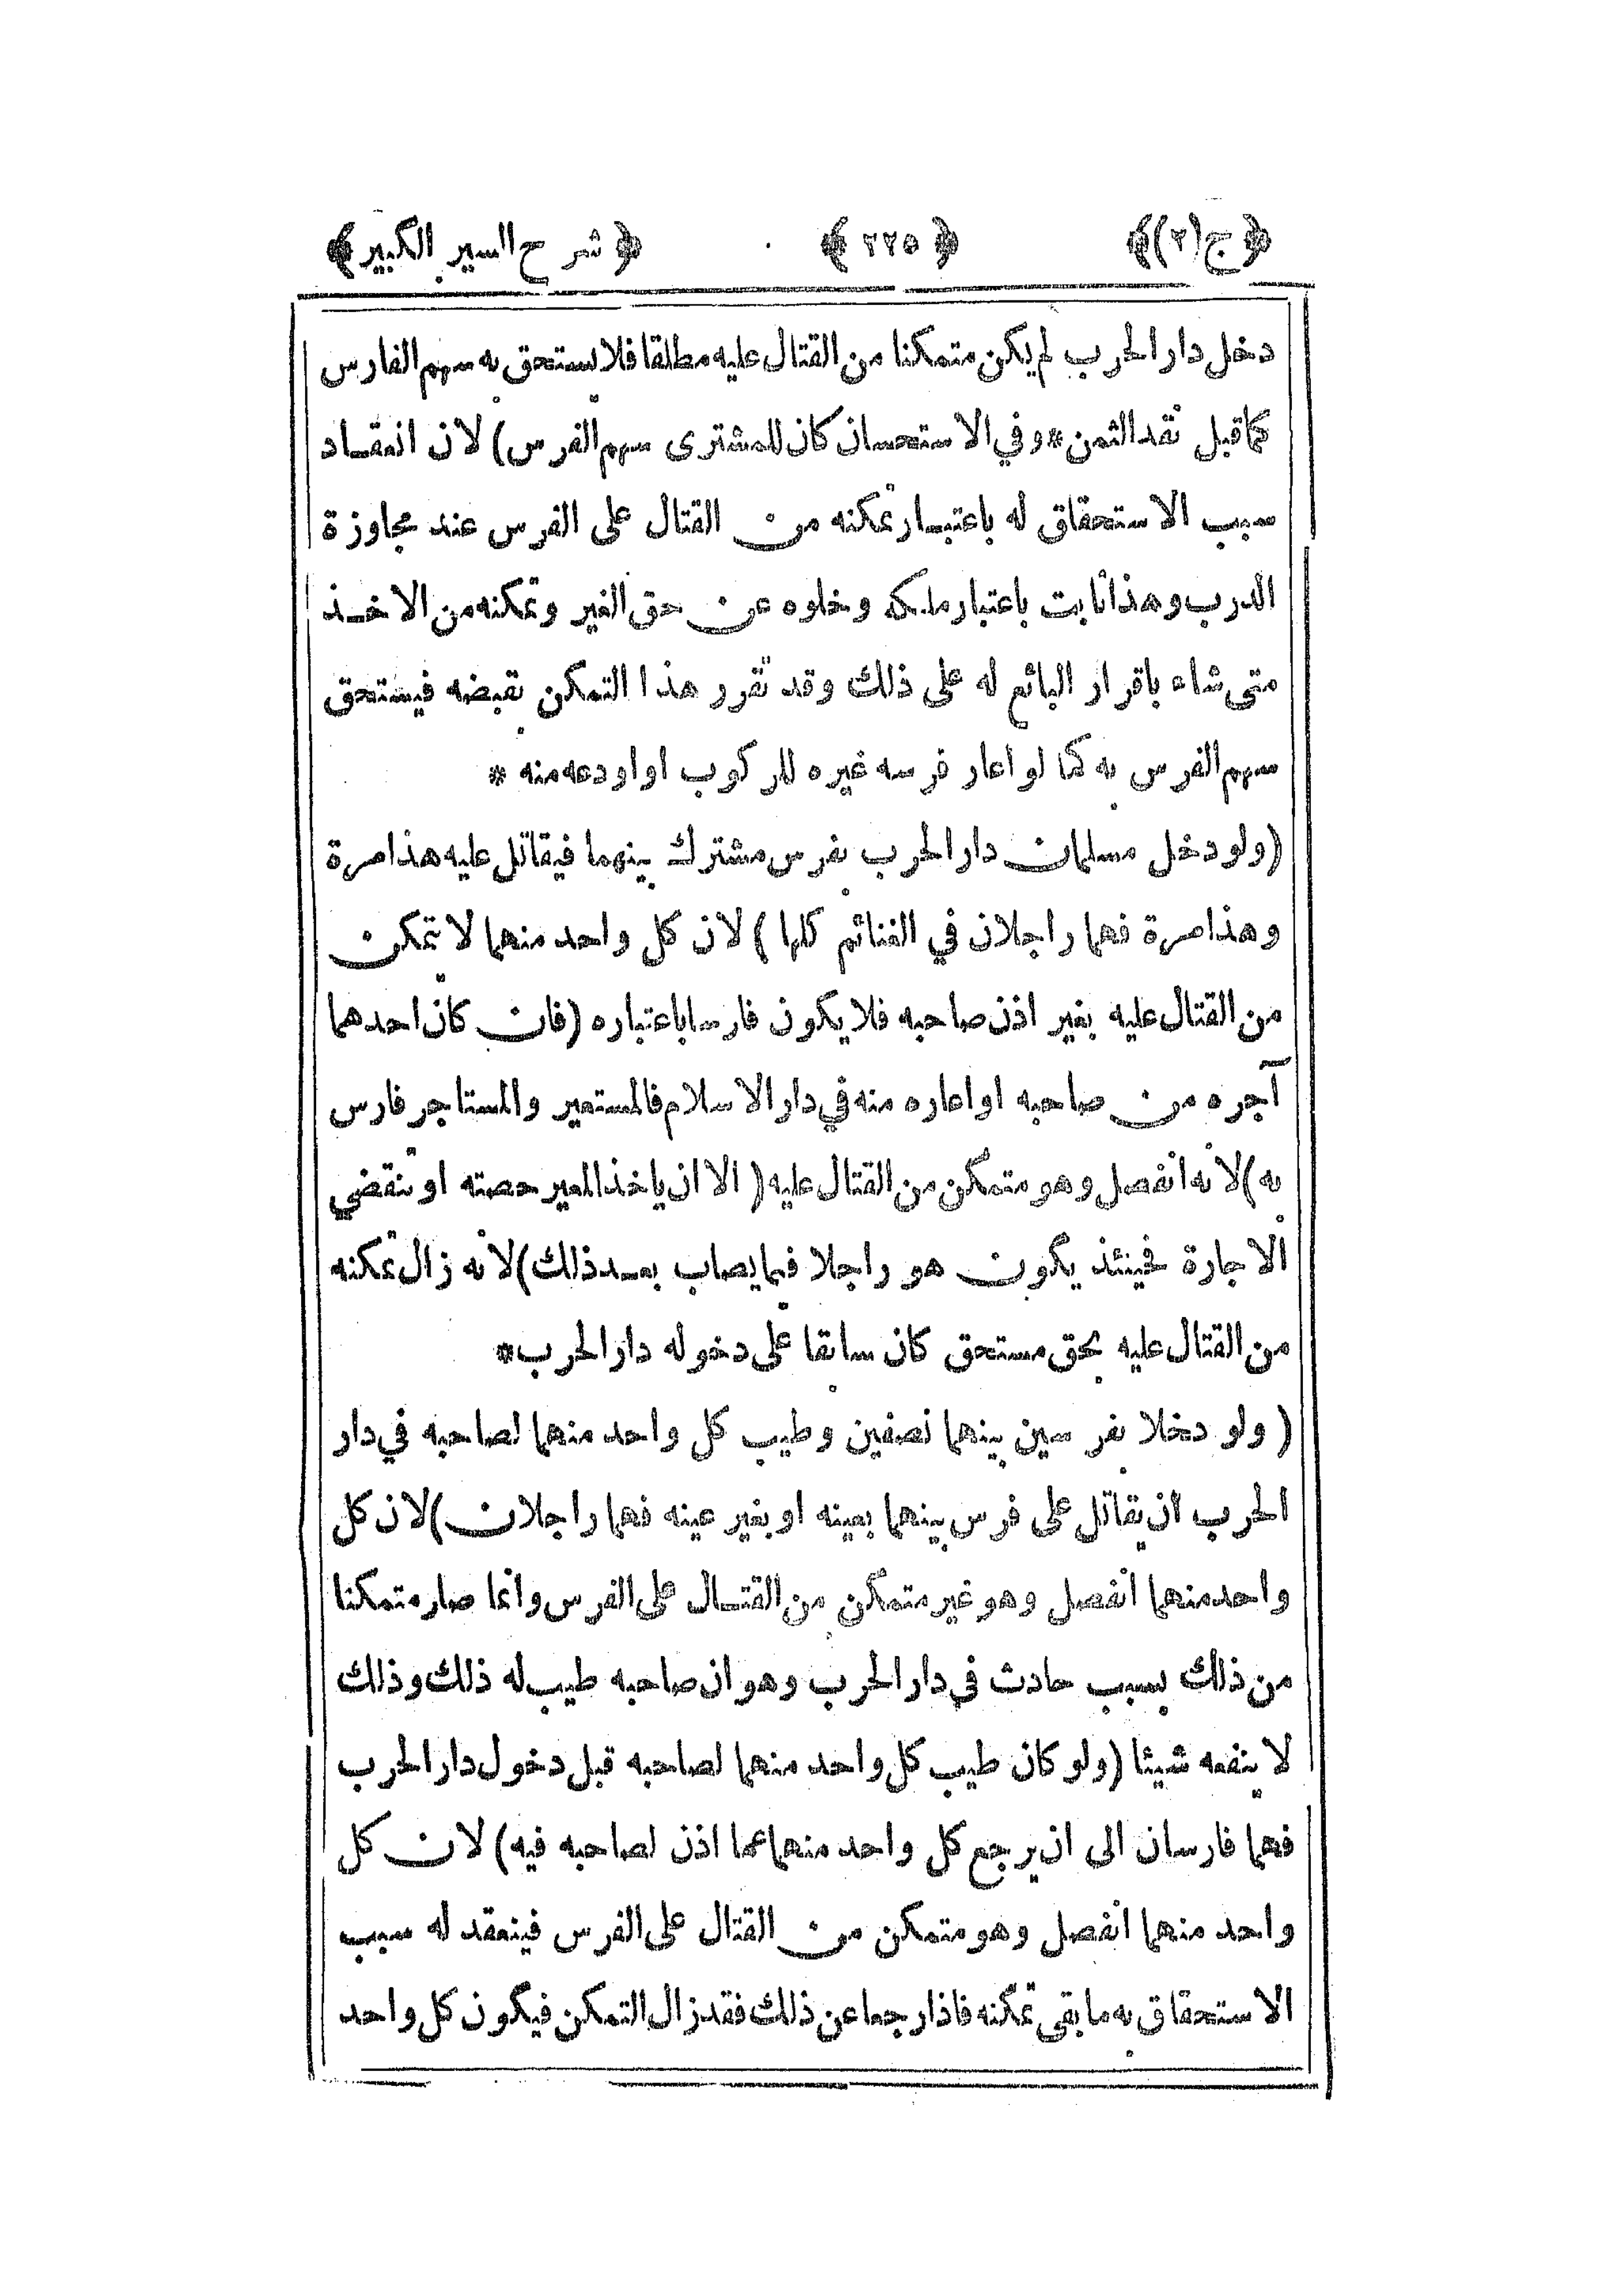 ﴿ج(٢)﴾ ﴿٢٢٥﴾ ﴿شرح السير الكبير﴾
دخل دار الحرب لم يكن متمكنا من القتال عليه مطلقا فلا يستحق به سهم الفارس
كما قبل نقد الثمن * وفي الاستحسان كان للمشترى سهم الفرس) لان انعقاد
سبب الاستحقاق له باعتبار تمكنه من القتال على الفرس عند مجاوزة
الدرب وهذا ثابت باعتبار ملكه وخلوه عن حق الغير وتمكنه من الاخذ
متى شاء باقرار البائع له على ذلك وقد تقرر هذا التمكن بقبضه فيستحق
سهم الفرس به كما لو اعار فرسه غيره للركوب او اودعه منه *
(ولو دخل مسلمان دار الحرب بفرس مشترك بينهما فيقاتل عليه هذا مرة
وهذا مرة فهما راجلان في الغنائم كلها) لان كل واحد منهما لا تمكن
من القتال عليه بغير اذن صاحبه فلا يكون فارسا باعتباره (فان كان احدهما
آجره من صاحبه او اعاره منه في دار الاسلام فالمستعير والمستاجر فارس
به) لانه انفصل وهو متمكن من القتال عليه (الا ان ياخذ المعير حصته او تنقضي
الاجارة فحينئذ يكون هو راجلا فيما يصاب بعد ذلك) لانه زال تمكنه
من القتال عليه بحق مستحق كان سابقا على دخوله دار الحرب *
(ولو دخلا بفرسين بينهما نصفين وطيب كل واحد منهما لصاحبه في دار
الحرب ان يقاتل على فرس بينهما بعينه او بغير عينه فهما راجلان) لان كل
واحد منهما انفصل وهو غير متمكن من القتال على الفرس وانما صار متمكنا
من ذلك بسبب حادث في دار الحرب وهو ان صاحبه طيب له ذلك وذلك
لا ينفعه شيئا (ولو كان طيب كل واحد منهما لصاحبه قبل دخول دار الحرب
فهما فارسان الى ان يرجع كل واحد منهما عما اذن لصاحبه فيه) لان كل
واحد منهما انفصل وهو متمكن من القتال على الفرس فينعقد له سبب
الاستحقاق به ما بقى تمكنه فاذا رجعا عن ذلك فقد زال التمكن فيكون كل واحد